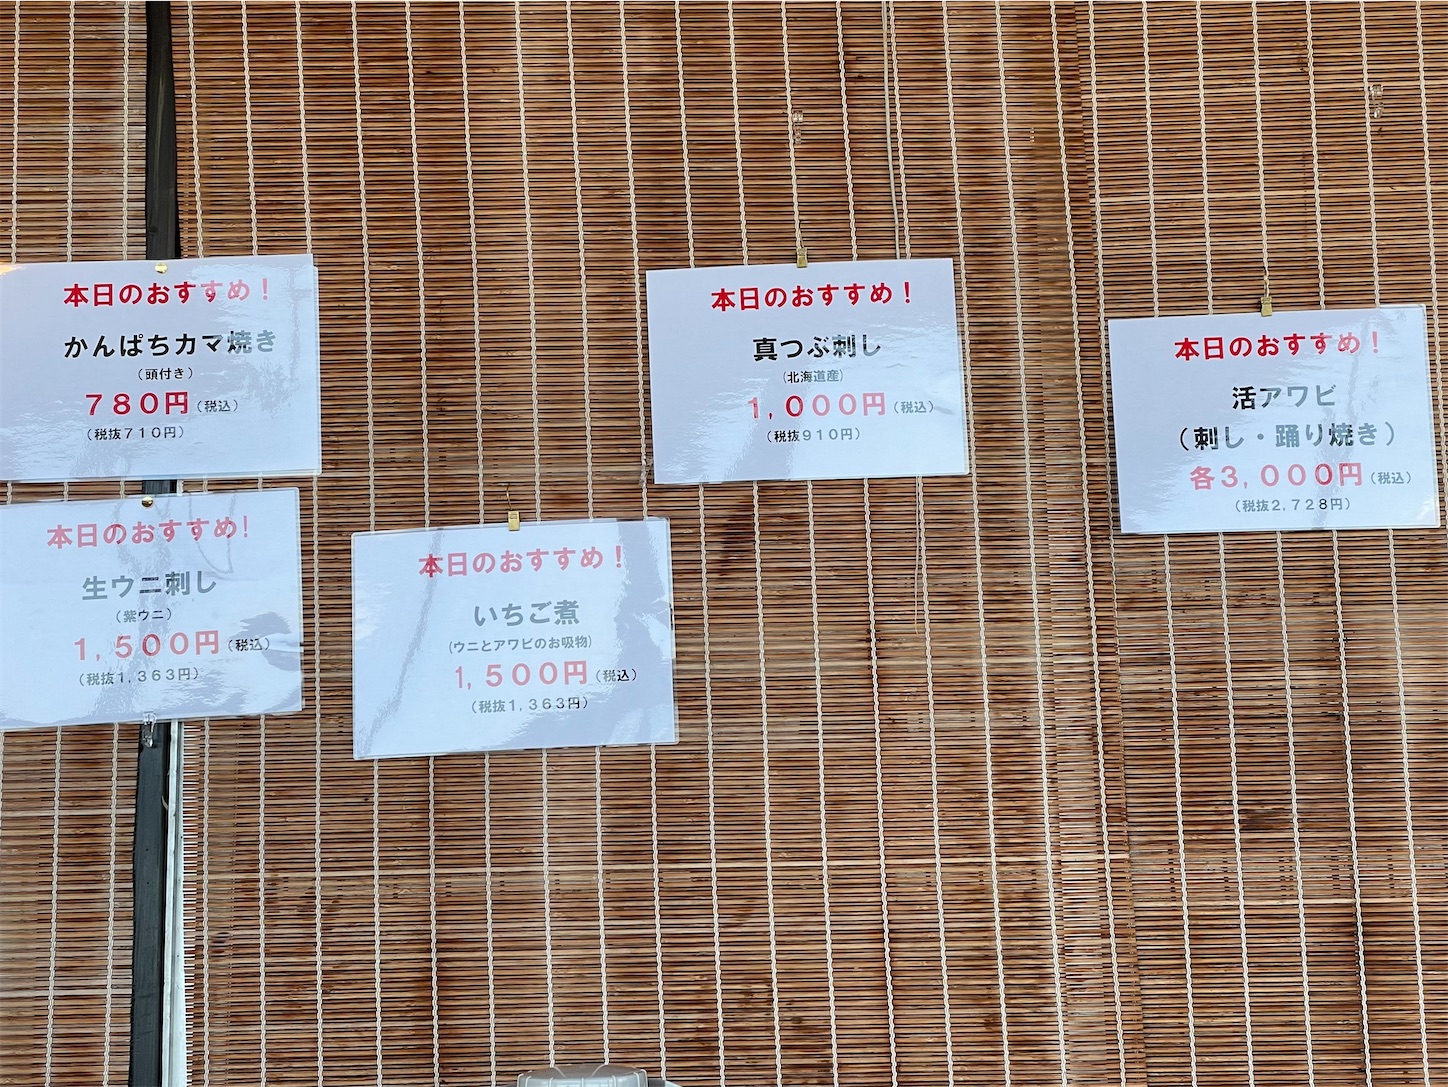 本日のおすすめ！
かんぱちカマ焼き
（頭付き）
７８０円（税込）
（税抜７１０円）
本日のおすすめ！
真つぶ刺し
（北海道産）
１，０００円（税込）
（税抜９１０円）
本日のおすすめ！
活アワビ
（刺し・踊り焼き）
各３，０００円（税込）
（税抜２，７２８円）
本日のおすすめ！
生ウニ刺し
（紫ウニ）
１，５００円（税込）
（税抜１，３６３円）
本日のおすすめ！
いちご煮
（ウニとアワビのお吸物）
１，５００円（税込）
（税抜１，３６３円）